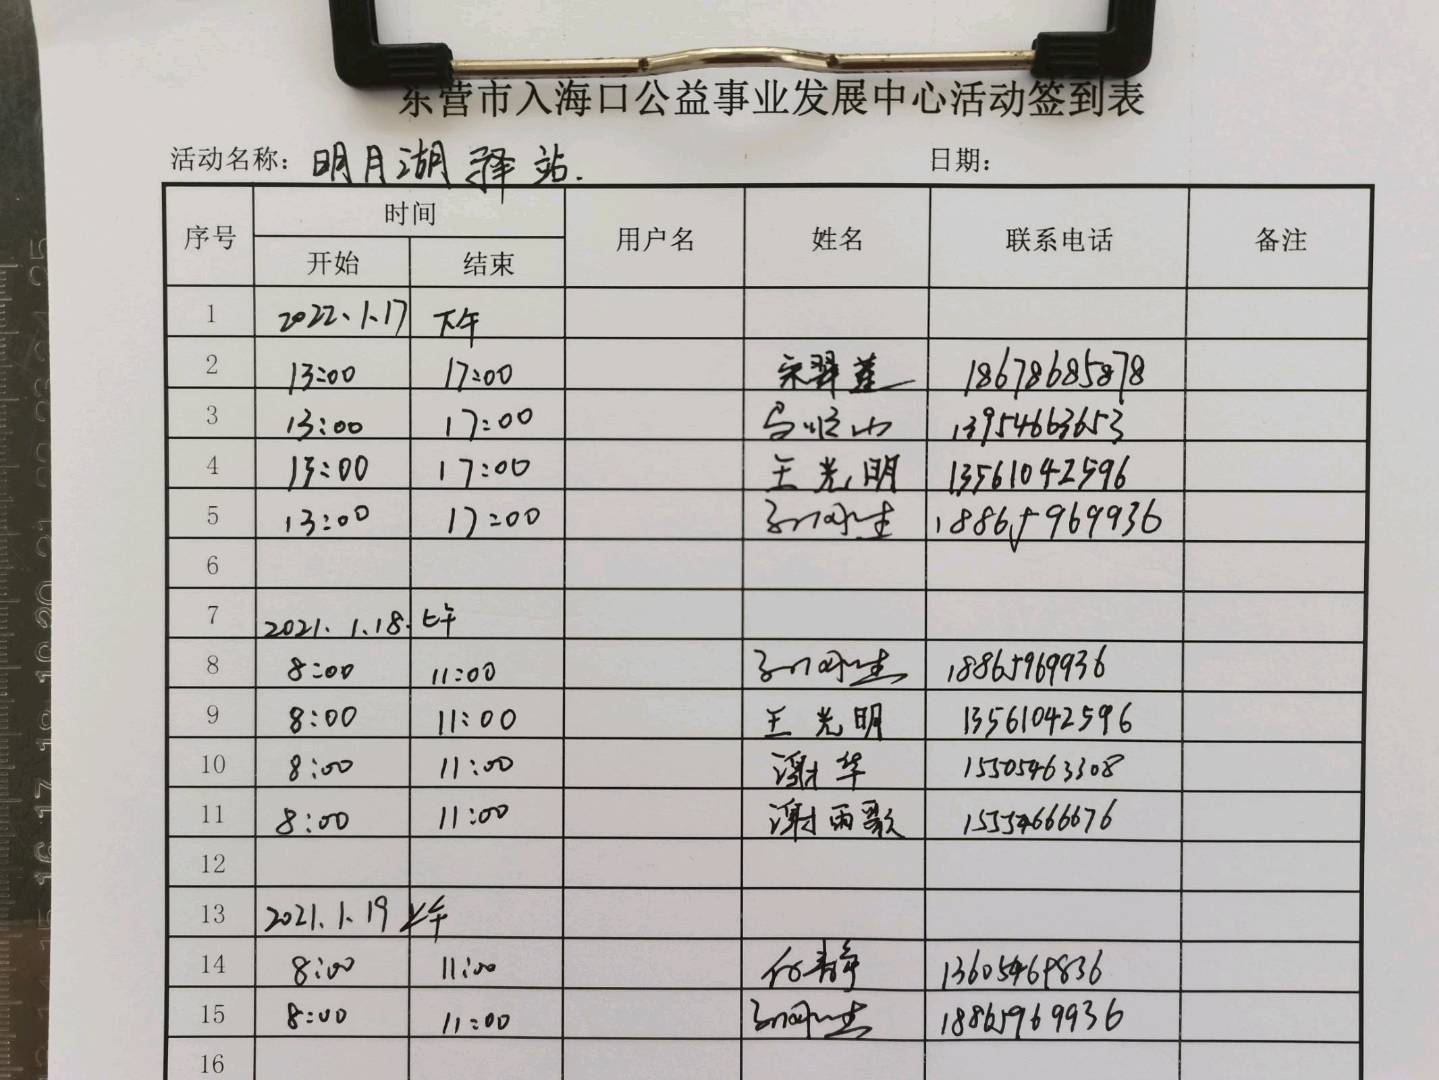 东营市入海口公益事业发展中心活动签到表
活动名称：明月湖驿站. 日期：
序号 时间 用户名 姓名 联系电话 备注
开始 结束
1 2022.1.17 下午
2 13:00 17:00 18678685878
3 13:00 17:00 13954663653
4 13:00 17:00 王光明 13561042596
5 13:00 17:00 18865969936
6
7 2021.1.18. 上午
8 8:00 11:00 18865969936
9 8:00 11:00 王光明 13561042596
10 8:00 11:00 谢华 15505463308
11 8:00 11:00 谢雨歌
12
13 2021.1.19 上午
14 8:00 11:00 13605469836
15 8:00 11:00 18865969936
16